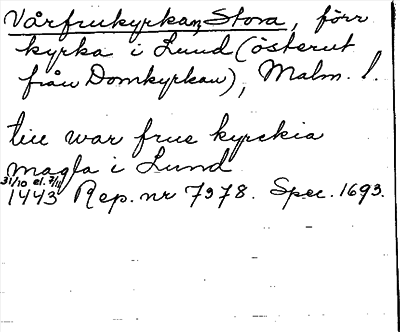 Vårfrukyrkan, Stora, förr
kyrka i Lund (österut
från Domkyrkan), Malm. l.
till war frue kyrckia
magla i Lund
31/10 el. 7/11
1443 Rep. nr 7978. Spec. 1693.